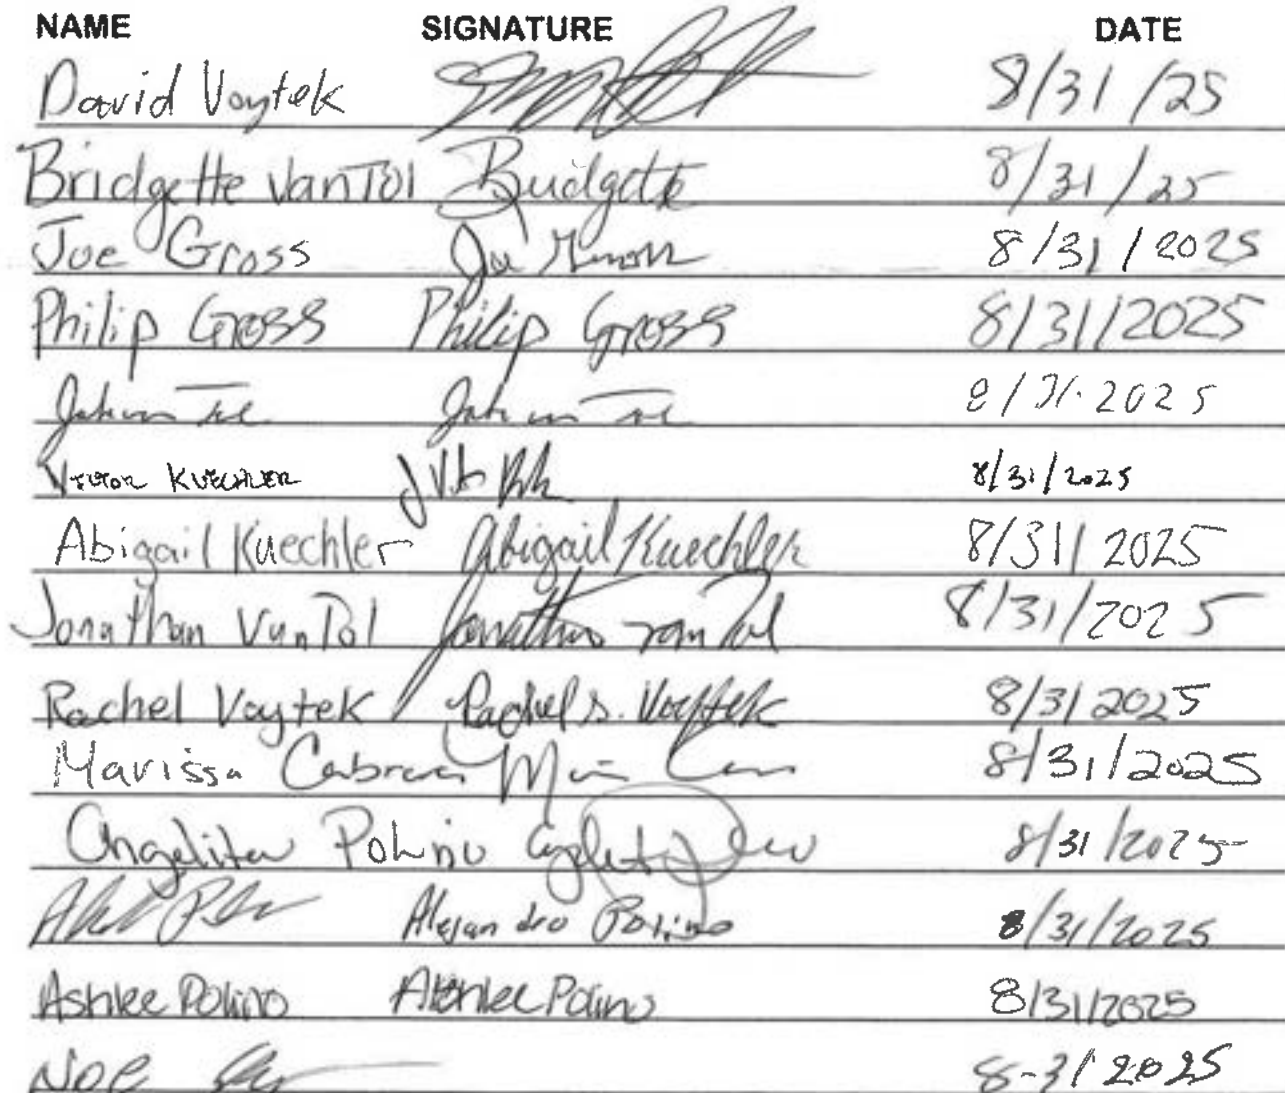 NAME SIGNATURE DATE
David Voytek 8/31/25
Bridgette VanTol Bridgette 8/31/25
Joe Gross Joe Gross 8/31/2025
Philip Gross Philip Gross 8/31/2025
8/31/2025
Victor Kuechler 8/31/2025
Abigail Kuechler Abigail Kuechler 8/31/2025
Jonathan VanTol Jonathan van Tol 8/31/2025
Rachel Voytek Rachel S. Voytek 8/31/2025
Marissa Cabrera 8/31/2025
Angelita Polino 8/31/2025
Alejandro Polino 8/31/2025
Ashlee Polino Ashlee Polino 8/31/2025
Noe 8-31 2025